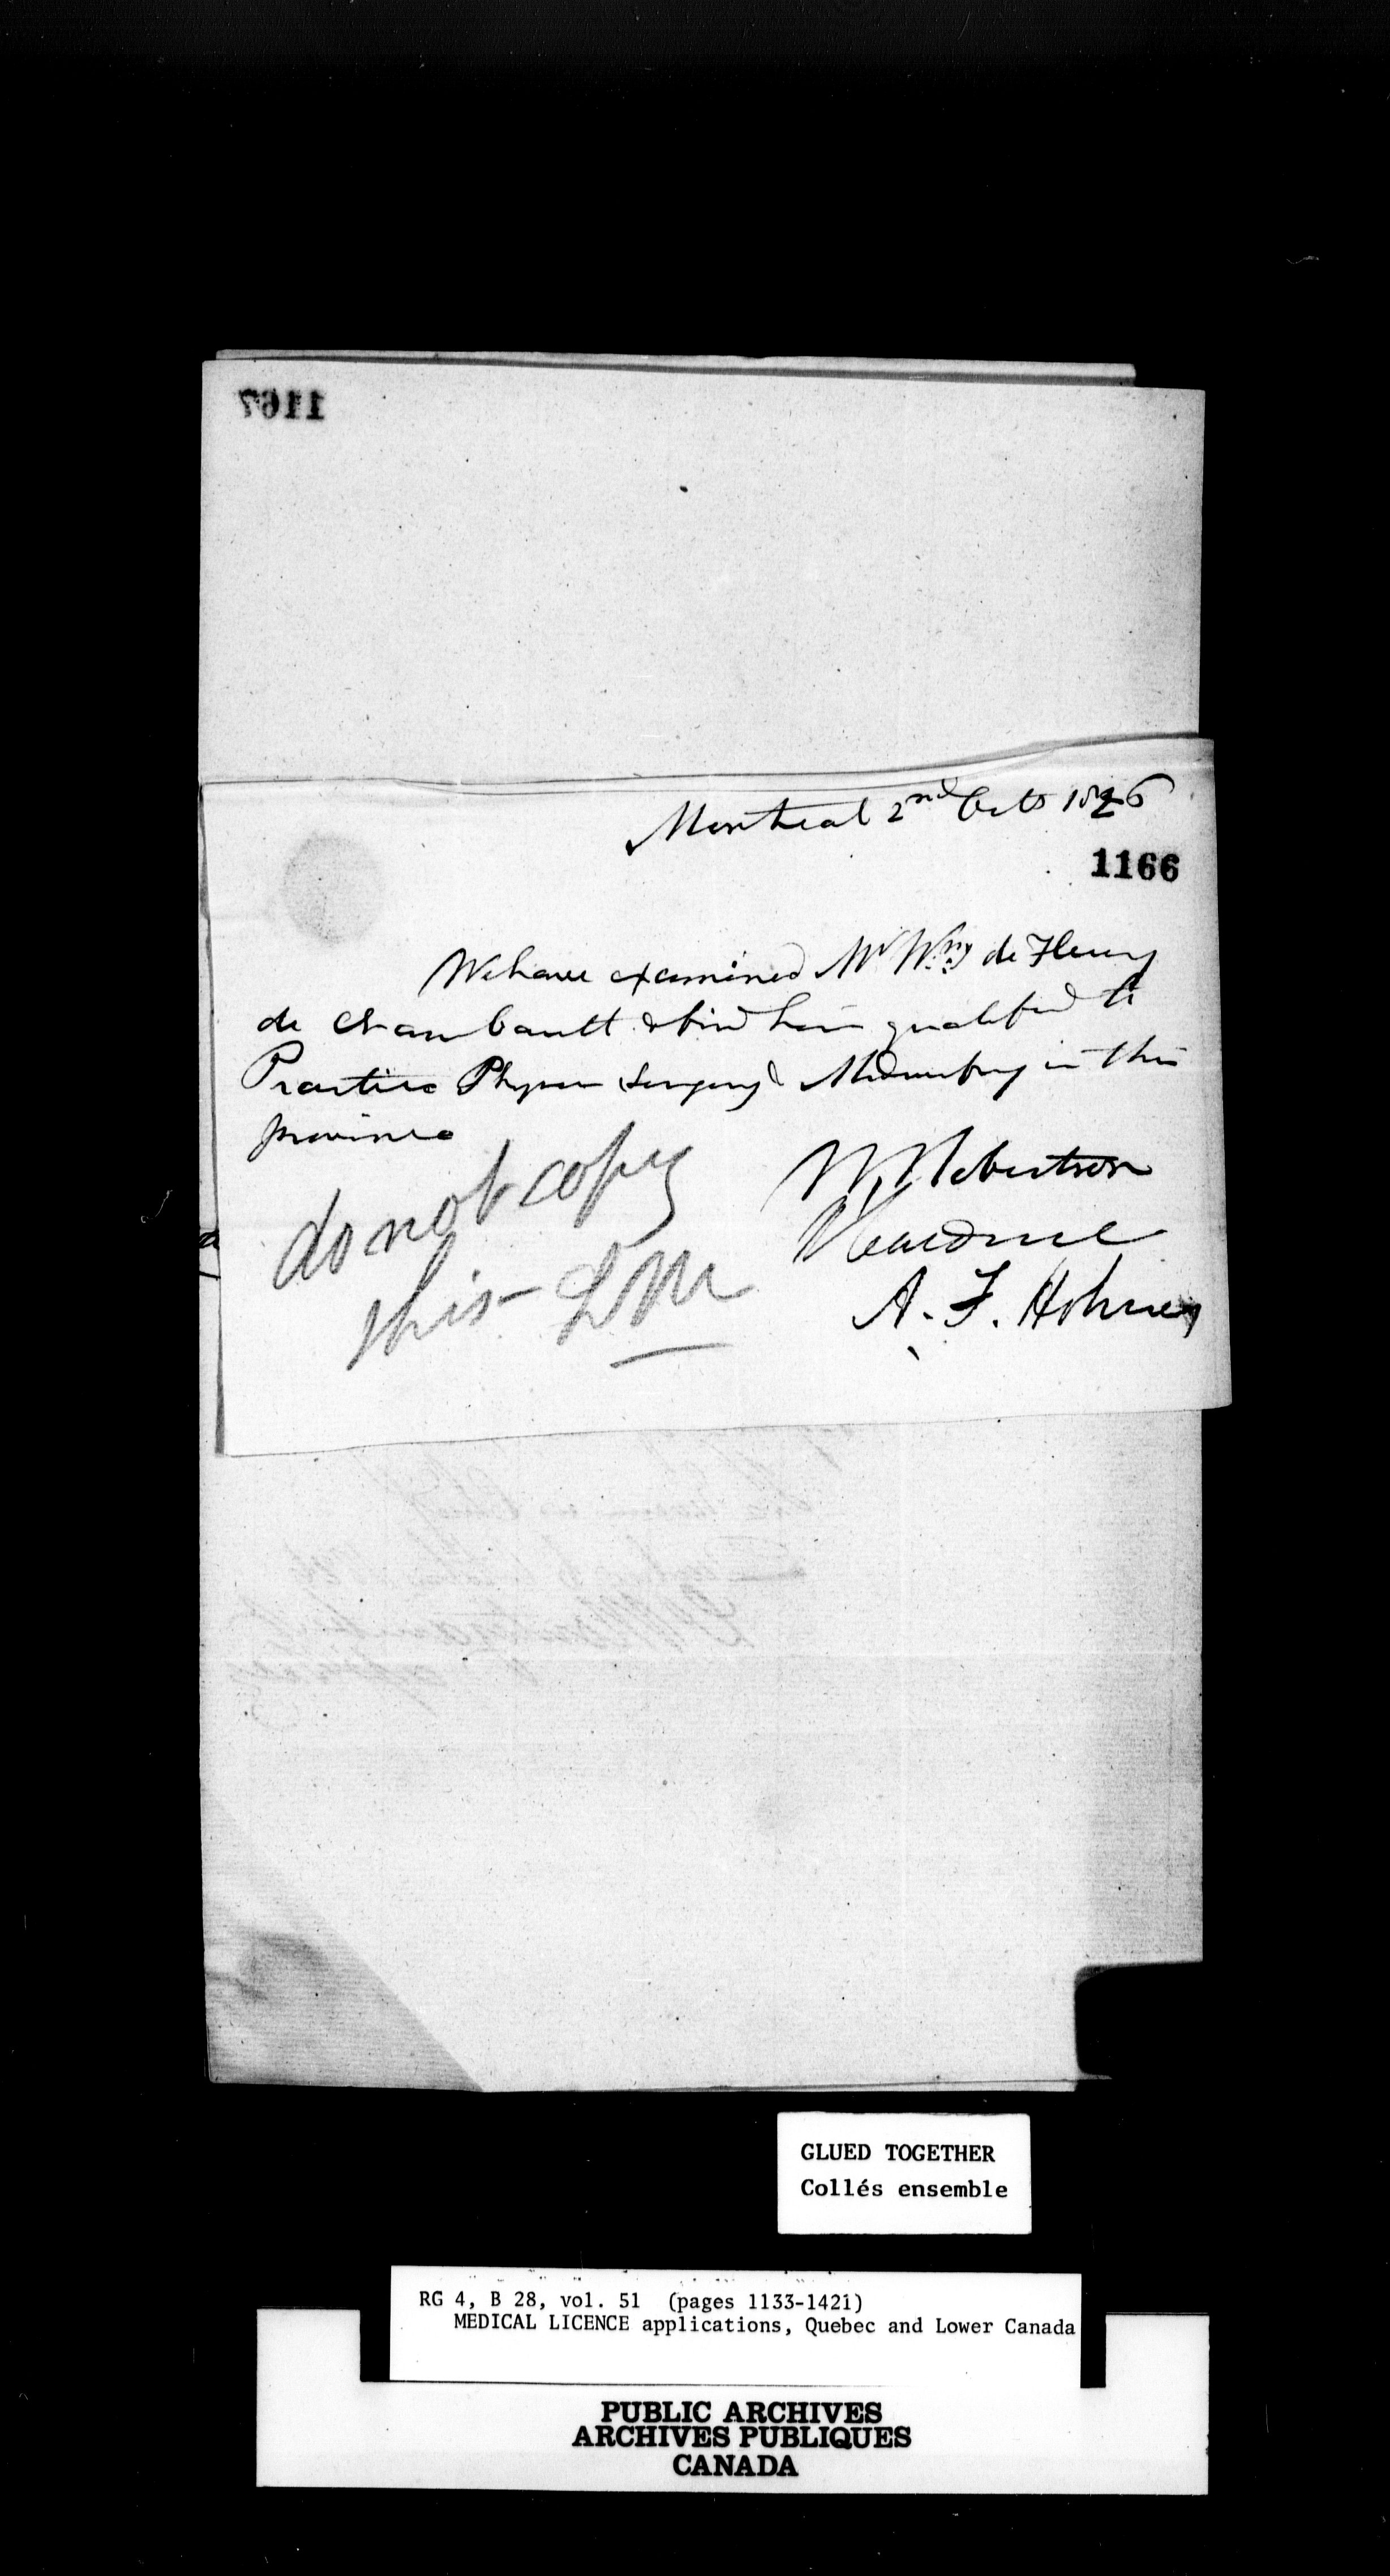 1167
Montreal 2nd Octr 1826
1166
We have examined Mr Wm de Fleury
de chambault & find him qualified to
Practice Physic Surgery & Midwifry in this
province
W Robertson
A. F. Holmes
do not copy
this - LM
GLUED TOGETHER
Collés ensemble
RG 4, B 28, vol. 51 (pages 1133-1421)
MEDICAL LICENCE applications, Quebec and Lower Canada
PUBLIC ARCHIVES
ARCHIVES PUBLIQUES
CANADA